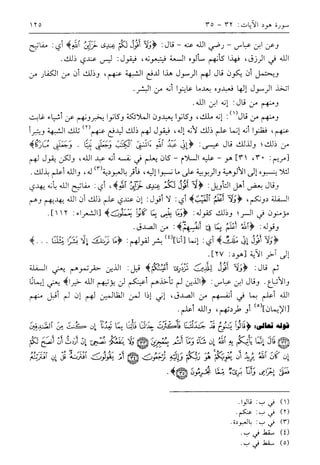 سورة هود الآيات: ٣٢ - ٣٥ ١٢٥
وعن ابن عباس - رضي الله عنه - قال: ﴿وَلَآ أَقُولُ لَكُمْ عِندِى خَزَآئِنُ ٱللَّهِ﴾ أي: مفاتيح
الله في الرزق، فهذا كأنهم سألوه السعة فيتبعونه، فيقول: ليس عندي ذلك.
ويحتمل أن يكون قال لهم الرسول هذا لدفع الشبهة عنهم، وذلك أن من الكفار من
اتخذ الرسول إلها فعبدوه بعدما عاينوا أنه من البشر.
ومنهم من قال: إنه ابن الله.
ومنهم من قال(١): إنه ملك، وكانوا يعبدون الملائكة وكانوا يخبرونهم عن أشياء غابت
عنهم، فظنوا أنه إنما علم ذلك لأنه إله، فيقول لهم ذلك ليدفع عنهم(٢) تلك الشبهة ويتبرأ
من ذلك؛ ولذلك قال عيسى: ﴿إِنِّى عَبْدُ ٱللَّهِ ءَاتَىٰنِىَ ٱلْكِتَٰبَ وَجَعَلَنِى نَبِيًّا . وَجَعَلَنِى مُبَارَكًا﴾
[مريم: ٣٠، ٣١] هو - عليه السلام - كان يعلم في نفسه أنه عبد الله، ولكن يقول لهم
لئلا ينسبوه إلى الألوهية والربوبية على ما نسبوا إليه، فأقر بالعبودية(٣) له، والله أعلم بذلك.
وقال بعض أهل التأويل: ﴿وَلَآ أَقُولُ لَكُمْ عِندِى خَزَآئِنُ ٱللَّهِ﴾، أي: مفاتيح الله بأنه يهدي
السفلة دونكم، ﴿وَلَآ أَعْلَمُ ٱلْغَيْبَ﴾ أي: لا أقول: إن عندي علم ذلك أن الله يهديهم وهم
مؤمنون في السر؛ وذلك كقوله: ﴿وَمَا عِلْمِى بِمَا كَانُوا۟ يَعْمَلُونَ﴾ [الشعراء: ١١٢].
وقوله: ﴿ٱللَّهُ أَعْلَمُ بِمَا فِىٓ أَنفُسِهِمْ﴾: من الصدق.
﴿وَلَآ أَقُولُ إِنِّى مَلَكٌ﴾ أي: إنما [أنا](٤) بشر لقولهم: ﴿مَا نَرَىٰكَ إِلَّا بَشَرًا مِّثْلَنَا . . .﴾
إلى آخر الآية [هود: ٢٧].
ثم قال: ﴿وَلَآ أَقُولُ لِلَّذِينَ تَزْدَرِىٓ أَعْيُنُكُمْ﴾ قيل: الذين حقرتموهم يعني السفلة
والأتباع. وقال ابن عباس: ﴿الذين لم تأخذهم أعينكم لن يؤتيهم الله خيرا﴾ يعني إيمانًا
الله أعلم بما في أنفسهم من الصدق، إني إذا لمن الظالمين لهم إن لم أقبل منهم
[الإيمان](٥) أو طردتهم، والله أعلم.
قوله تعالى: ﴿قَالُوا۟ يَٰنُوحُ قَدْ جَٰدَلْتَنَا فَأَكْثَرْتَ جِدَٰلَنَا فَأْتِنَا بِمَا تَعِدُنَآ إِن كُنتَ مِنَ ٱلصَّٰدِقِينَ
﴿٣٢﴾ قَالَ إِنَّمَا يَأْتِيكُم بِهِ ٱللَّهُ إِن شَآءَ وَمَآ أَنتُم بِمُعْجِزِينَ ﴿٣٣﴾ وَلَا يَنفَعُكُمْ نُصْحِىٓ إِنْ أَرَدتُّ أَنْ أَنصَحَ لَكُمْ
إِن كَانَ ٱللَّهُ يُرِيدُ أَن يُغْوِيَكُمْ هُوَ رَبُّكُمْ وَإِلَيْهِ تُرْجَعُونَ ﴿٣٤﴾ أَمْ يَقُولُونَ ٱفْتَرَىٰهُ قُلْ إِنِ ٱفْتَرَيْتُهُۥ
فَعَلَىَّ إِجْرَامِى وَأَنَا۠ بَرِىٓءٌ مِّمَّا تُجْرِمُونَ ﴿٣٥﴾﴾.
(١) في ب: قالوا.
(٢) في ب: عنكم.
(٣) في ب: بالعبودة.
(٤) سقط في ب.
(٥) سقط في ب.